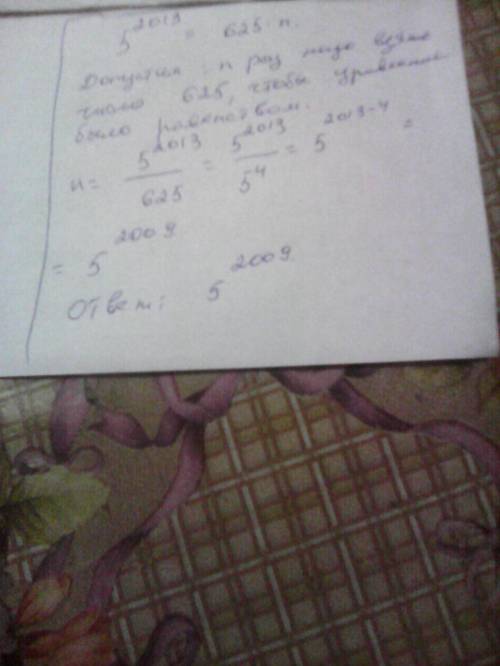 5^2013 = 625 · n.
Допустим : n раз надо взять
число 625, чтобы уравнение
было равенством.
n = 5^2013 / 625 = 5^2013 / 5^4 = 5^2013-4 =
= 5^2009
Ответ: 5^2009